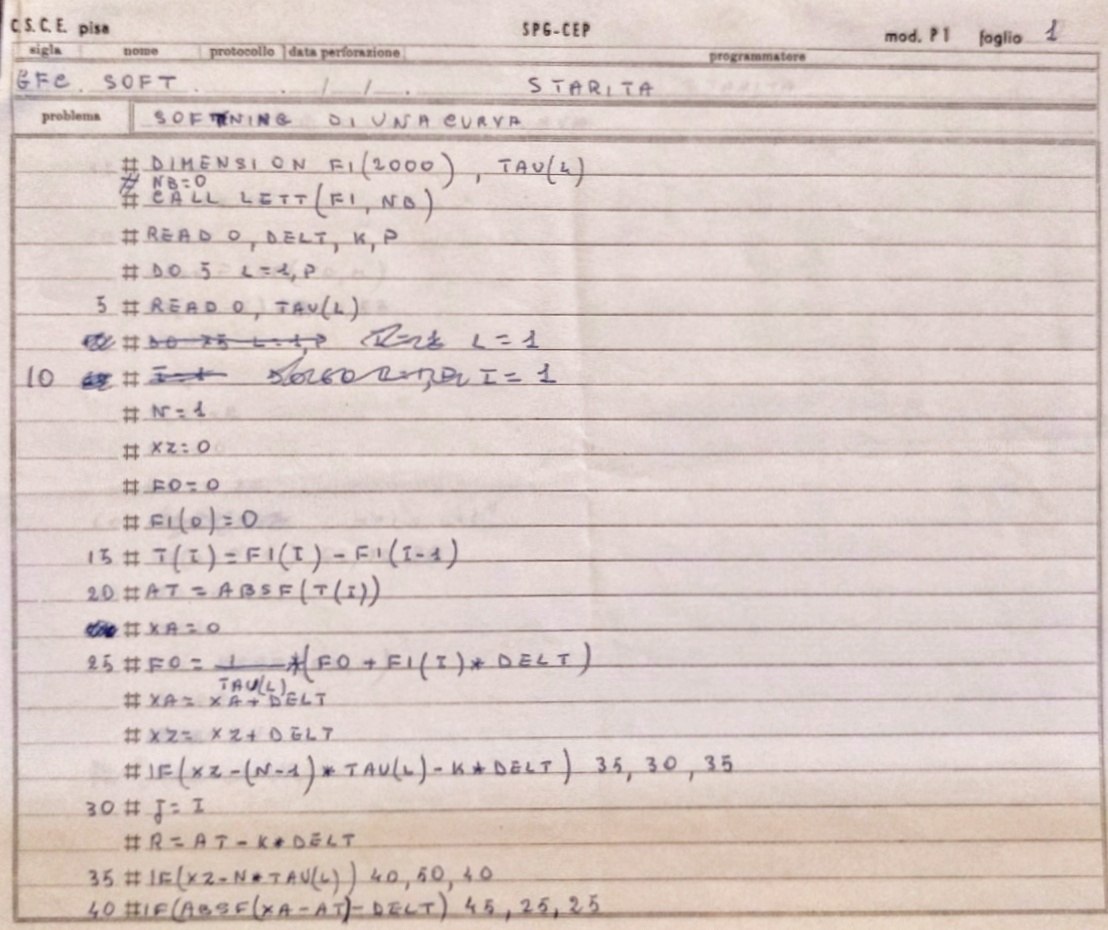 C.S.C.E. pisa SPG-CEP mod. P1 foglio 1
sigla nome protocollo data perforazione programmatore
GFC. SOFT . . / / . STARITA
problema SOFTNING DI UNA CURVA
# DIMENSION F1(2000), TAU(L)
# NB=0
# CALL LETT(F1, NB)
# READ 0, DELT, K, P
# DO 5 L=1, P
5 # READ 0, TAU(L)
# DO 75 L=1, P L=1
10 # I=1 I=1
# N=1
# XZ=0
# FO=0
# F1(0)=0
15 # T(I)=F1(I)-F1(I-1)
20 # AT=ABSF(T(I))
# XA=0
25 # FO= 1 *(FO+F1(I)*DELT)
TAU(L)
# XA= XA+DELT
# XZ= XZ+DELT
# IF(XZ-(N-1)*TAU(L)-K*DELT) 35, 30, 35
30 # J=I
# R=AT-K*DELT
35 # IF(XZ-N*TAU(L)) 40, 50, 40
40 # IF(ABSF(XA-AT)-DELT) 45, 25, 25